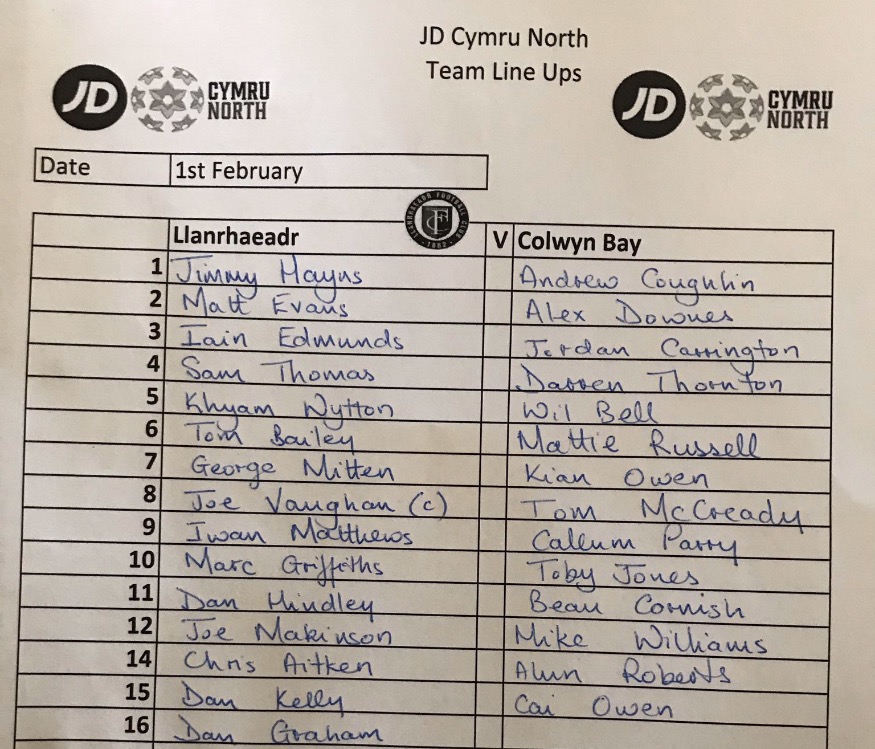 JD Cymru North
Team Line Ups
JD CYMRU NORTH
JD CYMRU NORTH
Date 1st February
LLANRHAEADR FOOTBALL CLUB
1882
Llanrhaeadr V Colwyn Bay
1 Jimmy Hayns Andrew Coughlin
2 Matt Evans Alex Downes
3 Iain Edmunds Jordan Carrington
4 Sam Thomas Darren Thornton
5 Khyam Wytton Wil Bell
6 Tom Bailey Mattie Russell
7 George Mitten Kian Owen
8 Joe Vaughan (c) Tom McCready
9 Iwan Matthews Callum Parry
10 Marc Griffiths Toby Jones
11 Dan Hindley Beau Cornish
12 Joe Makinson Mike Williams
14 Chris Aitken Alun Roberts
15 Dan Kelly Cai Owen
16 Dan Graham